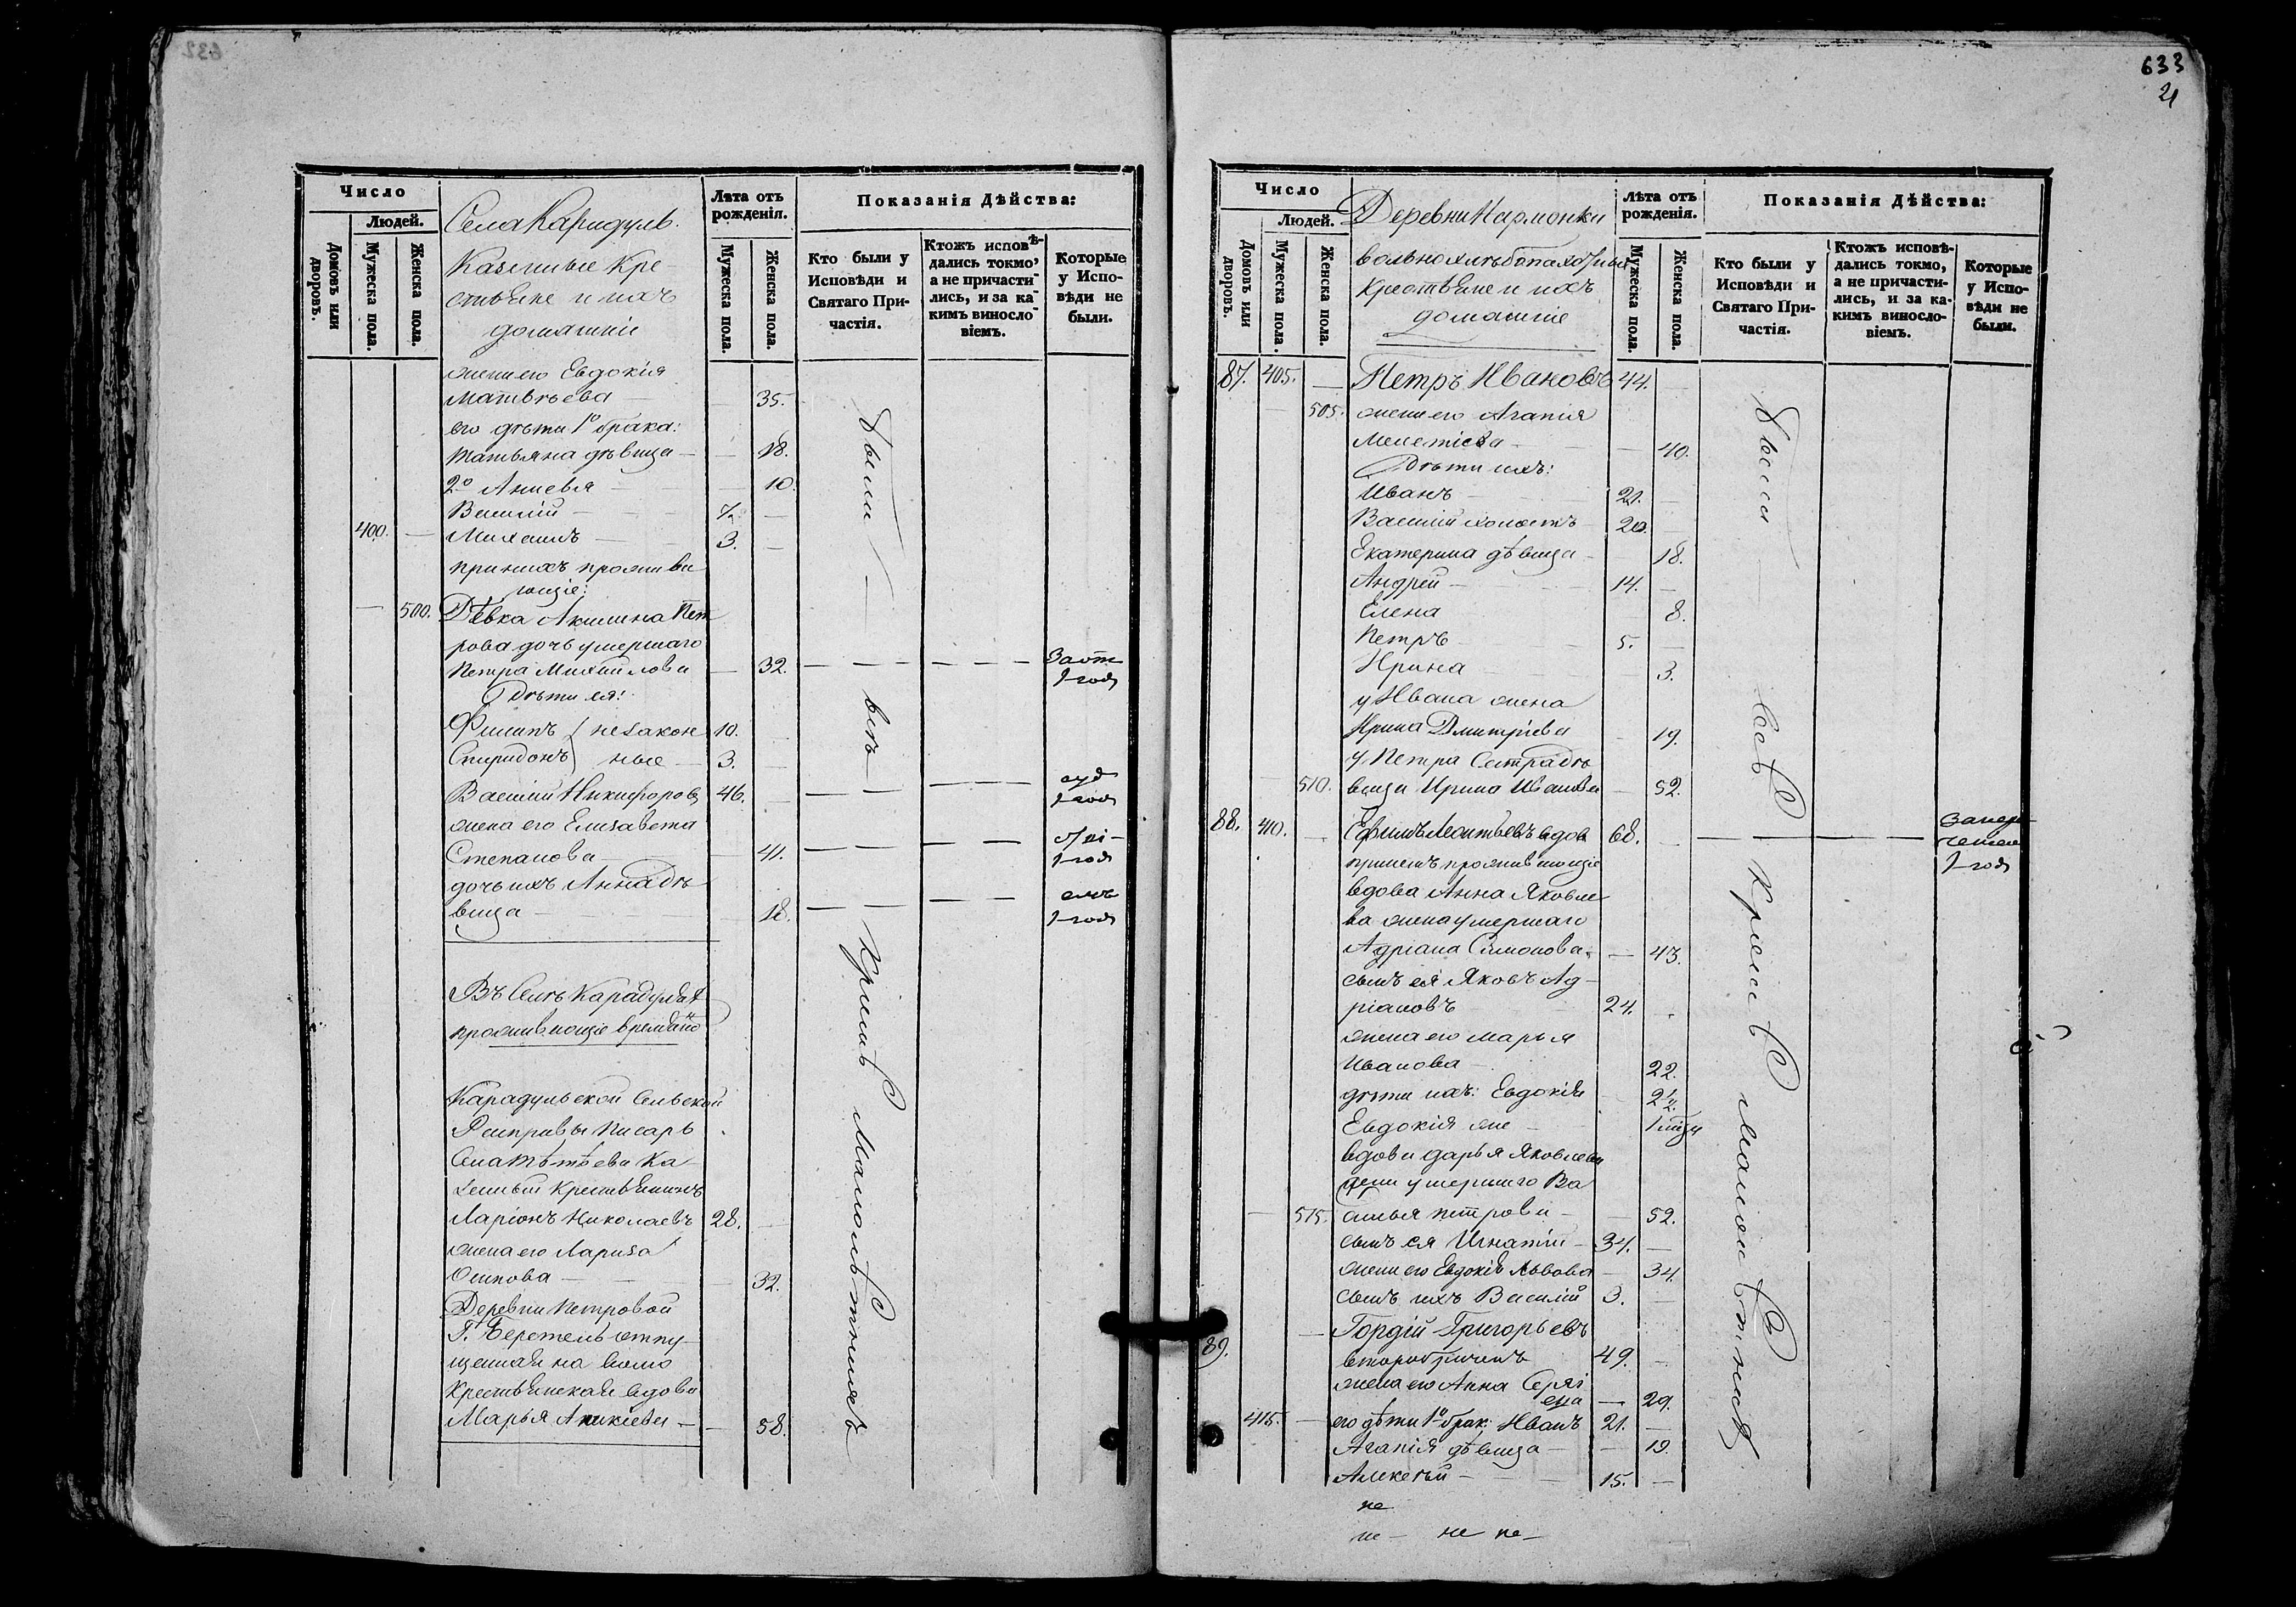 632
Число
Людей.
Домовъ или дворовъ.
Мужеска пола.
Женска пола.
Села Карадуль.
Казенные Кре-
стьяне и ихъ
домашніе
Лѣта отъ рожденія.
Мужеска пола.
Женска пола.
Показанія Дѣйства:
Кто были у Исповѣди и Святаго При-частія.
Ктожъ исповѣ-дались токмо, а не причасти-лись, и за ка-кимъ виносло-віемъ.
Которые у Испо-вѣди не были.
жена его Евдокія
Матвѣева — 35.
его дѣти 1º брака:
Татьяна дѣвица — — 18.
2º Анисья — 10.
Василій — 7. —
400. — Михаилъ — 3. —
при нихъ прожива
ющіе:
— 500. Дѣвка Акилина Пет
рова дочь умершаго
Петра Михайлова — 32. — — — — — — За от
1 годъ
Дѣти ея:
Филипъ } незакон 10.
Спиридонъ } ные — 3. —
Василій Никифоровъ 46. — — — — — суд
1 годъ
жена его Елизавета
Степанова — 41. — — — — —
1 годъ
дочь ихъ Анна дѣ
вица — 18. — — — — —
1 годъ
были — всѣ — Кримѣ малолѣтнихъ
Въ Селѣ Карадулѣ
проживающіе временно
Карадульской Сельской
Расправы писарь
Ка-
зенный крестьянинъ
Ларіонъ Николаевъ 28. —
жена его Лариса
Осипова — 32.
Деревни Петровой
Г. Беретель отпу-
щенная на волю
крестьянская вдова
Марья Аникіева — — 58.
633
21
Число
Людей.
Домовъ или дворовъ.
Мужеска пола.
Женска пола.
Деревни Кармонки
вольнохлѣбопахотные
крестьяне и ихъ
домашніе
Лѣта отъ рожденія.
Мужеска пола.
Женска пола.
Показанія Дѣйства:
Кто были у Исповѣди и Святаго При-частія.
Ктожъ исповѣ-дались токмо, а не причасти-лись, и за ка-кимъ виносло-віемъ.
Которые у Испо-вѣди не были.
87. 405. — Петръ Ивановъ 44. —
— 505. жена его Агапія
Мелетіева — — 40.
Дѣти ихъ:
Иванъ — 21. —
Василій холостъ 20. —
Екатерина дѣвица — 18.
Андрей — 14. —
Елена 8.
Петръ — 5. —
Ирина — 3.
у Ивана жена
Ирина Дмитріева — 19.
у Петра сестра дѣ
— 510. вица Ирина Иванова — 52.
88. 410. — Ефимъ Леонтьевъ вдов 68. — — — —
1 годъ
при немъ проживающіе
вдова Анна Яковле
ва жена умершаго
Адріана Симонова. — 43.
сынъ ея Яковъ Ад-
ріановъ 24. —
жена его Марья
Иванова — 22.
дѣти ихъ: Евдокія 2½.
Евдокія же — 1 мѣся
вдова Дарья Яковлева
жена умершаго Ва
— 515. силья Петрова — — 52.
сынъ ея Игнатій — 34. —
жена его Евдокія Львова — 34.
сынъ ихъ Василій 3. —
89. — Гордій Григорьевъ
второбрачный 49. —
жена его Анна Сергі
ева — 29.
415. — его дѣти 1º брак: Иванъ 21. —
Агапія дѣвица — — 19.
Алексѣй — — 15. —
не
не — не не —
были — всѣ Кримѣ малолѣтнихъ